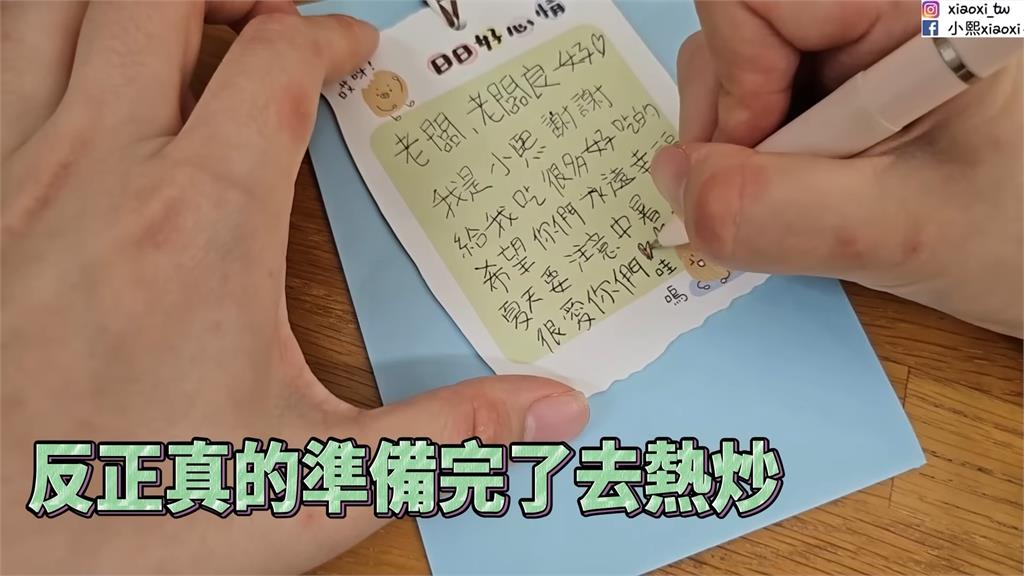 xiaoxi_tw
小熙xiaoxi
日日好心情
哎呀!
老闆、老闆良好♡
我是小熙 謝謝
給我吃很多好吃的
希望你們永遠幸
夏天要注意中暑
很愛你們♥
嗚 哇
反正真的準備完了去熱炒